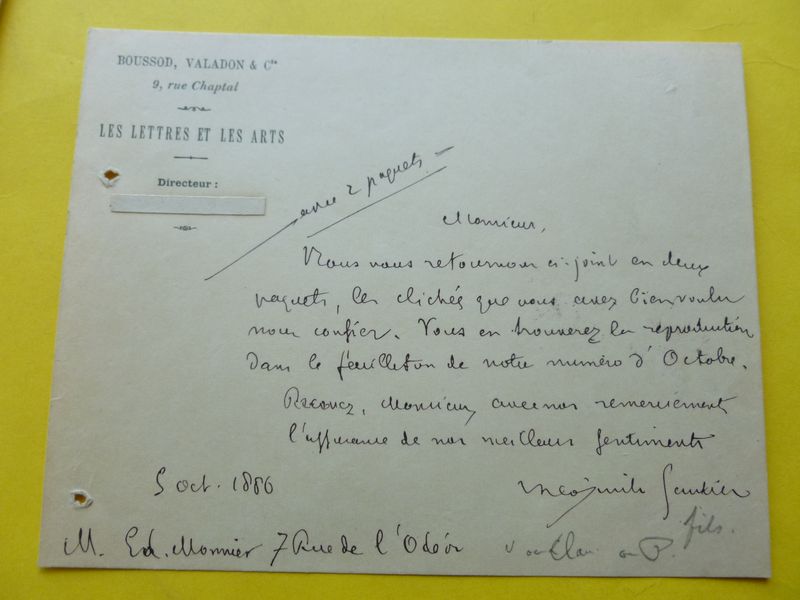 BOUSSOD, VALADON & Cie
9, rue Chaptal
LES LETTRES ET LES ARTS
Directeur :
avec 2 paquets
Monsieur,
Nous vous retournons ci-joint en deux
paquets, les clichés que vous avez bien voulu
nous confier. Vous en trouverez la reproduction
dans le feuilleton de notre numéro d'Octobre.
Recevez, Monsieur, avec nos remerciements
l'assurance de nos meilleurs sentiments
5 oct. 1886
Gautier
fils.
M. Ed. Monnier 7 Rue de l'Odéon